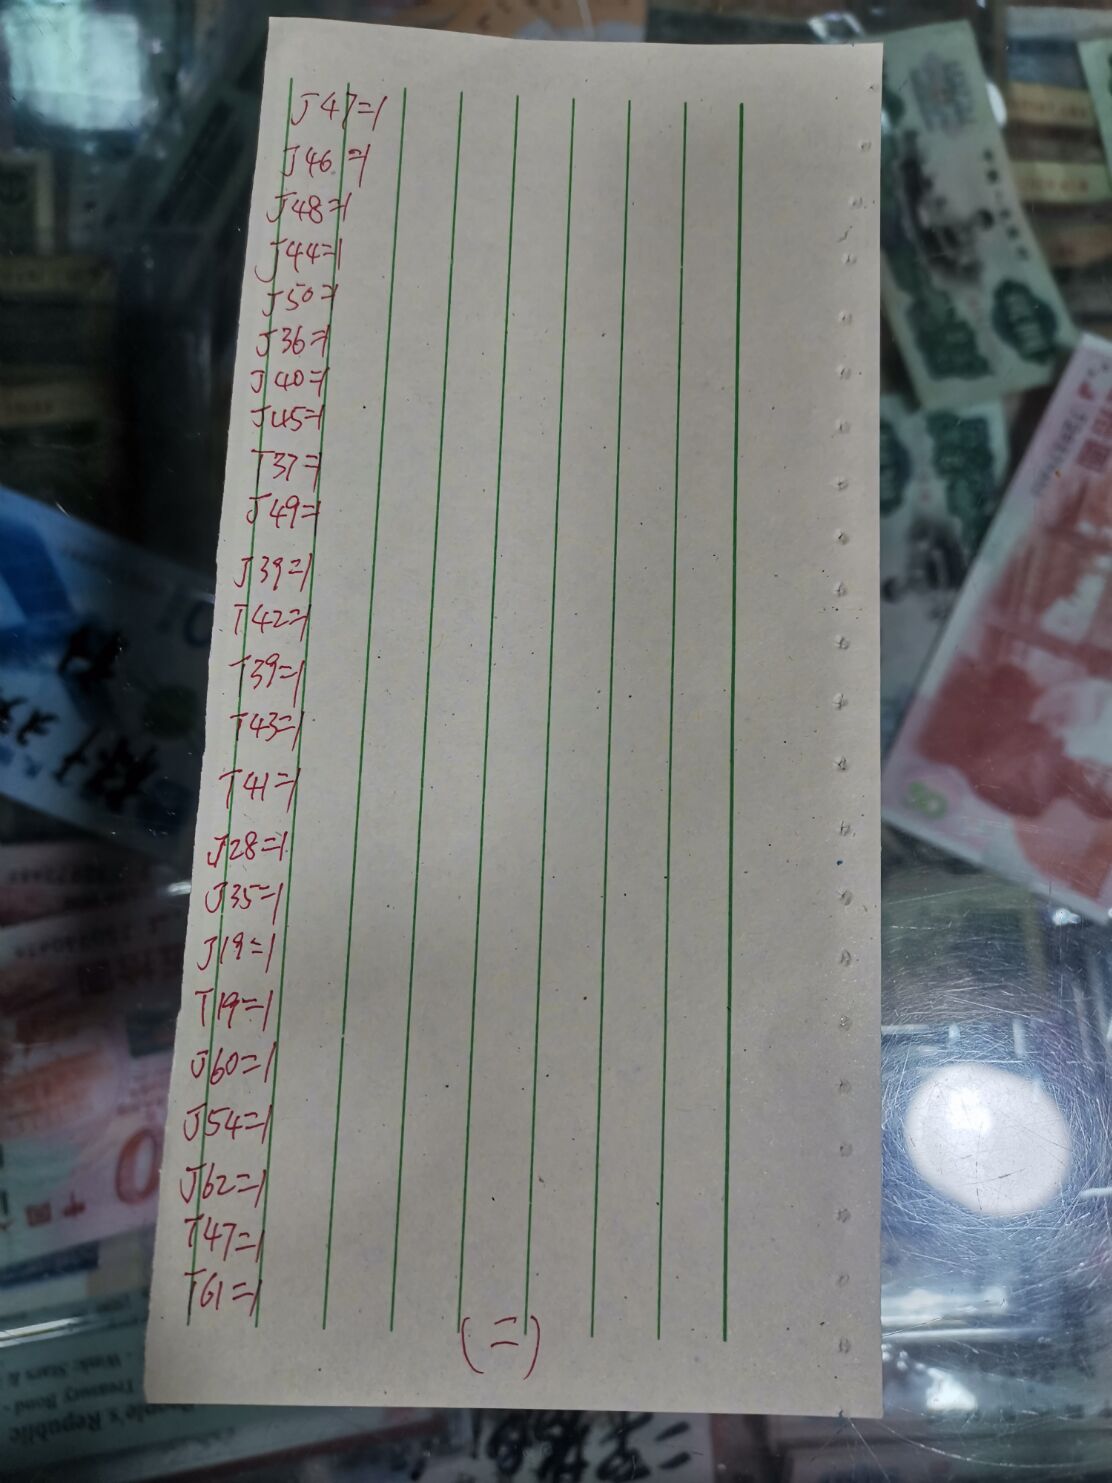 J47=1
J46=1
J48=1
J44=1
J50=1
J36=1
J40=1
J45=1
T37=1
J49=1
J39=1
T42=1
T39=1
T43=1
T41=1
J28=1
J35=1
J19=1
T19=1
J60=1
J54=1
J62=1
T47=1
T61=1
(二)
People's Republic
Treasury Bond